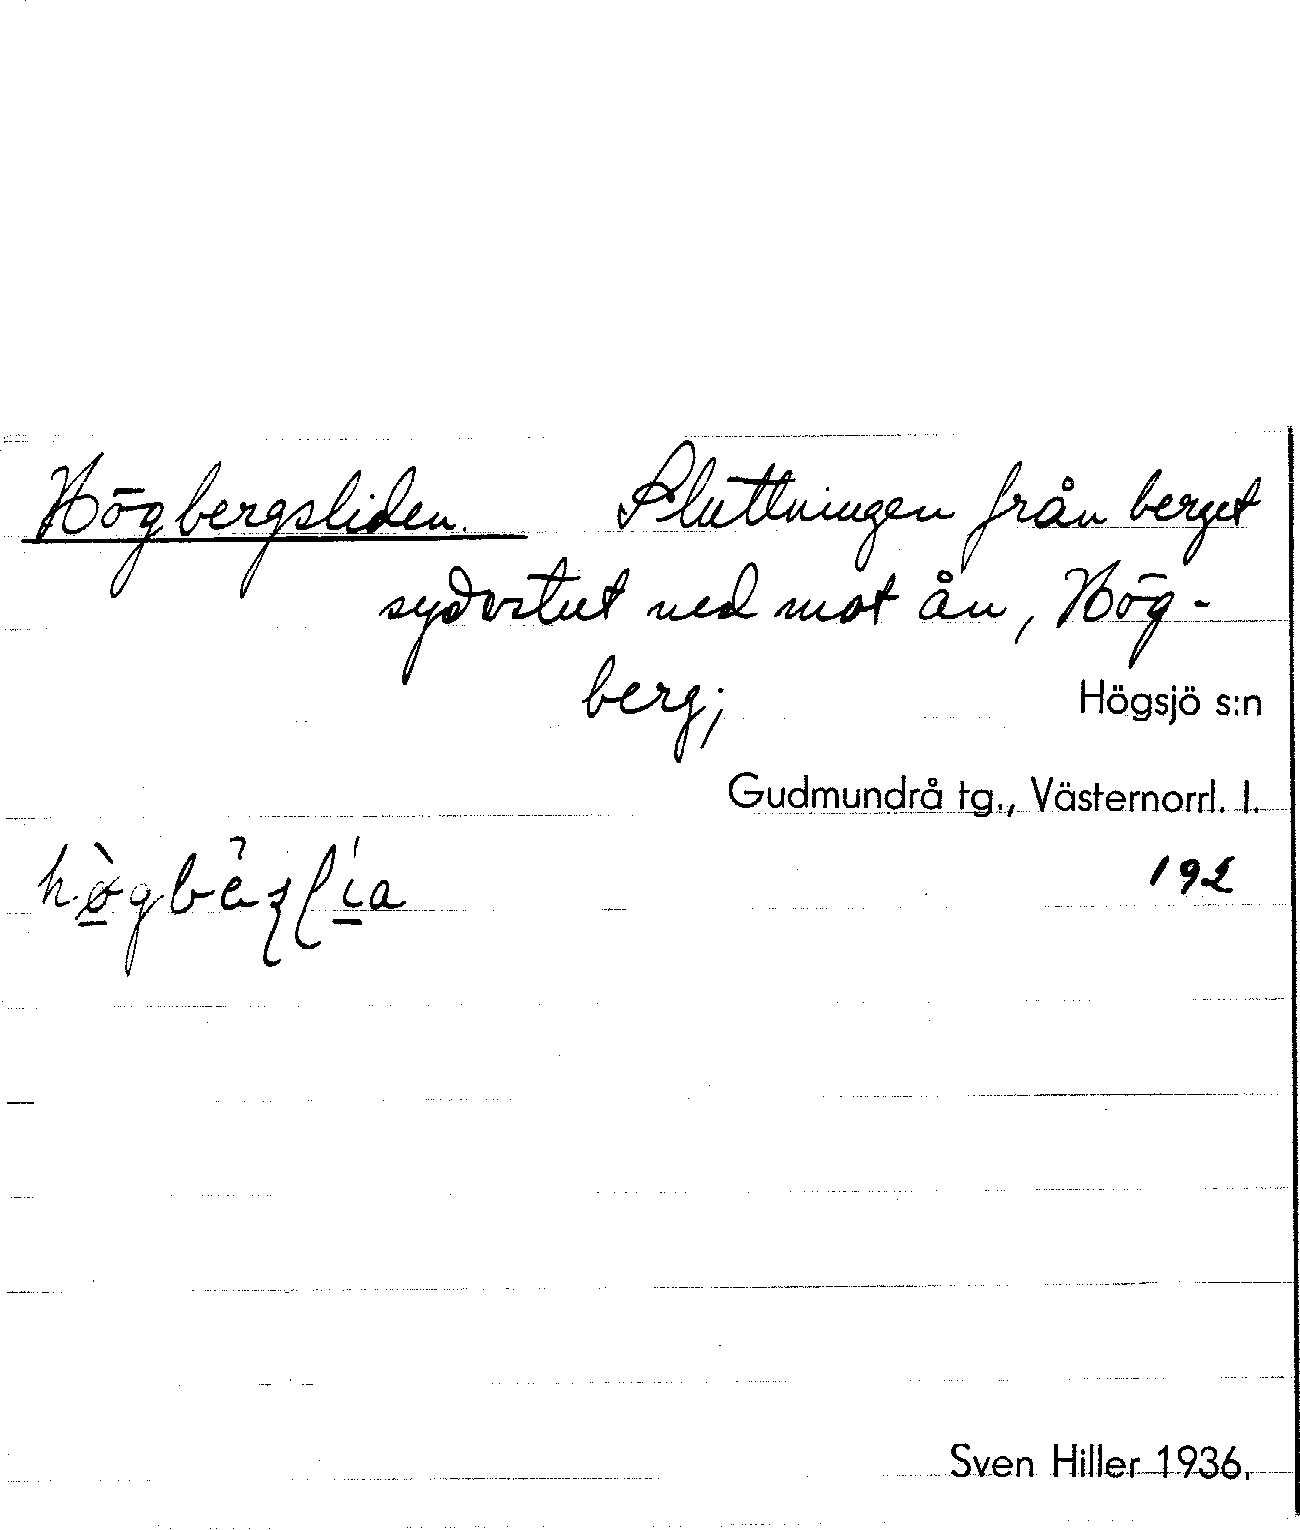 Högbergsliden. Sluttningen från berget
sydvstut ned mot ån, Hög-
berg;
Högsjö s:n
Gudmundrå tg., Västernorrl. l.
192
Sven Hiller 1936.